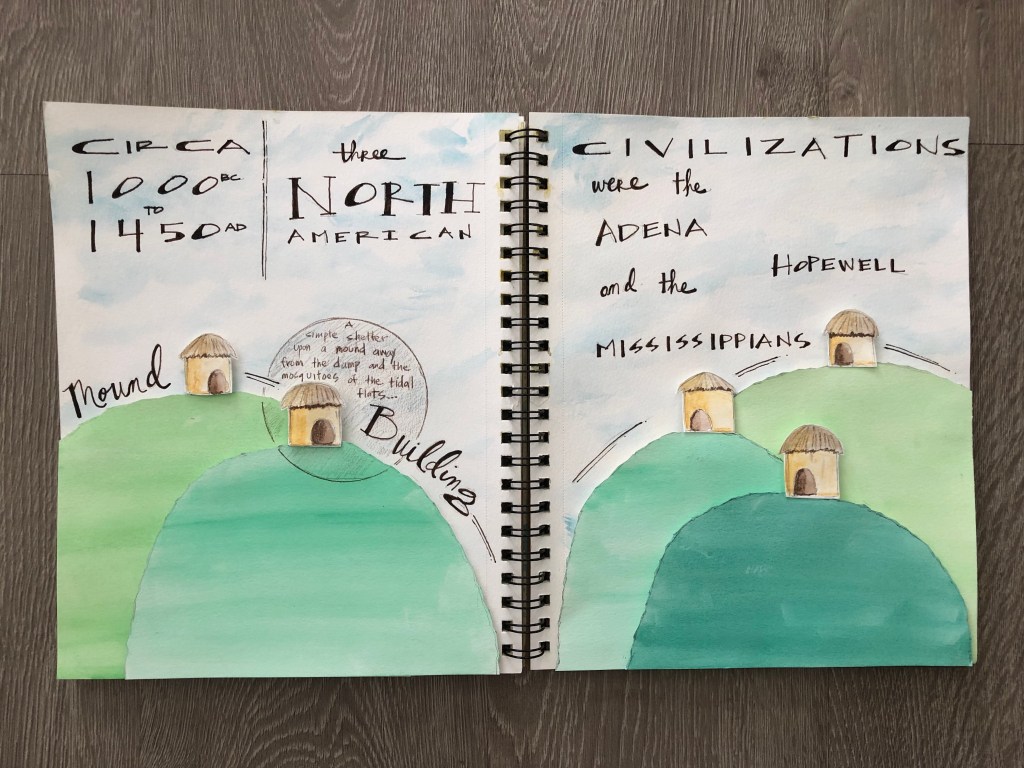 CIRCA
1000 BC
TO
1450 AD
three
NORTH
AMERICAN
Mound
A
simple shelter
upon a mound away
from the damp and the
mosquitoes of the tidal
flats...
Building
CIVILIZATIONS
were the
ADENA
HOPEWELL
and the
MISSISSIPPIANS